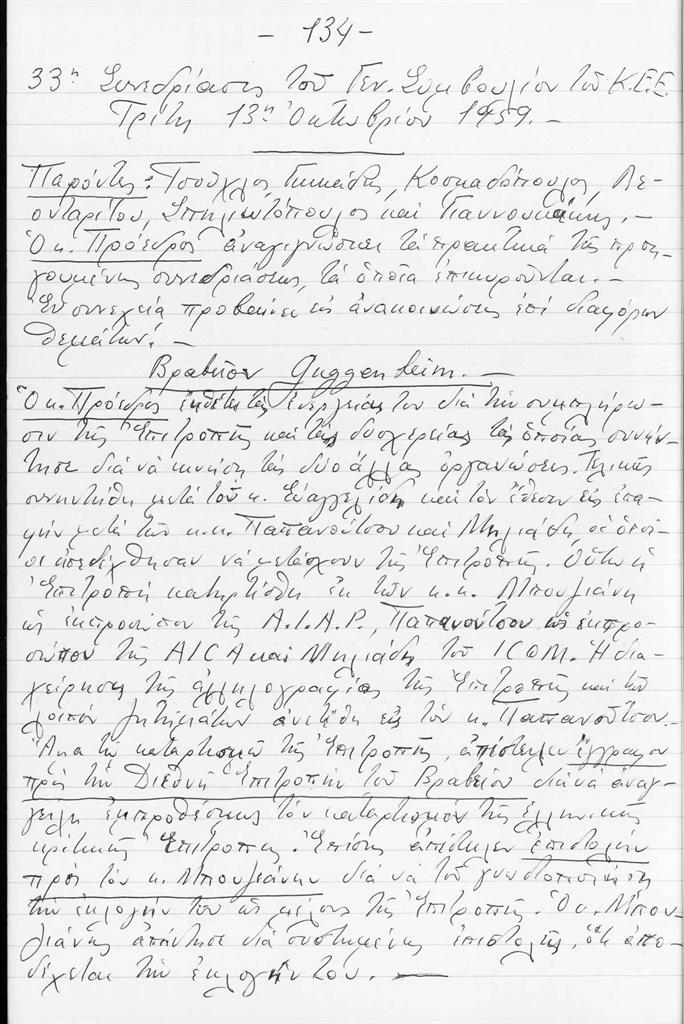 - 134 -
33η Συνεδρίασις τοῦ Γεν. Συμβουλίου τοῦ Κ.Ε.Ε.
Τρίτη 13η Ὀκτωβρίου 1959. -
Παρόντες: Τσούχλος, Γκικάδης, Κοσκαδόπουλος, Λε-
ονταρίτου, Σπηλιωτόπουλος καὶ Γιαννουκάκης. -
Ὁ κ. Πρόεδρος ἀναγιγνώσκει τὰ πρακτικὰ τῆς προη-
γουμένης συνεδριάσεως, τὰ ὁποῖα ἐπικυροῦνται. -
Ἐν συνεχείᾳ προβαίνει εἰς ἀνακοινώσεις ἐπὶ διαφόρων
θεμάτων: -
Βραβεῖον Guggenheim. -
Ὁ κ. Πρόεδρος ἐκθέτει τὰς ἐνεργείας του διὰ τὴν συμπλήρω-
σιν τῆς Ἐπιτροπῆς καὶ τὰς δυσχερείας τὰς ὁποίας συνήν-
τησε διὰ νὰ κινήσῃ τὰς δύο ἄλλας ὀργανώσεις. Τελικῶς
συνηντήθη μετὰ τοῦ κ. Εὐαγγελίδη καὶ τὸν ἔθεσεν εἰς ἐπα-
φὴν μετὰ τῶν κ.κ. Παπανούτσου καὶ Μηλιάδη, οἱ ὁποῖ-
οι ἀπεδέχθησαν νὰ μετάσχουν τῆς Ἐπιτροπῆς. Οὕτω ἡ
Ἐπιτροπὴ κατηρτίσθη ἐκ τῶν κ.κ. Μπουζιάνη
ὡς ἐκπροσώπου τῆς A.I.A.P., Παπανούτσου ὡς ἐκπρο-
σώπου τῆς AICA καὶ Μηλιάδη τοῦ ICOM. Ἡ δια-
χείρησις τῆς ἀλληλογραφίας τῆς Ἐπιτροπῆς καὶ τῶν
λοιπῶν ζητημάτων ἀνετέθη εἰς τὸν κ. Παπανοῦτσον.
Ἅμα τῷ καταρτισμῷ τῆς Ἐπιτροπῆς, ἀπέστειλεν ἔγγραφον
πρὸς τὴν Διεθνῆ Ἐπιτροπὴν τοῦ Βραβείου διὰ νὰ ἀναγ-
γείλῃ ἐμπροθέσμως τὸν καταρτισμὸν τῆς ἑλληνικῆς
κριτικῆς Ἐπιτροπῆς. Ἐπίσης ἀπέστειλεν ἐπιστολὴν
πρὸς τὸν κ. Μπουζιάνην διὰ νὰ τοῦ γνωστοποιήσῃ
τὴν ἐκλογήν του ὡς μέλους τῆς Ἐπιτροπῆς. Ὁ κ. Μπου-
ζιάνης ἀπήντησε διὰ συστημένης ἐπιστολῆς, ὅτι ἀπο-
δέχεται τὴν ἐκλογήν του. -